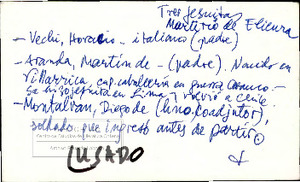 Tres Jesuitas
Martirio de Elicura
- Vechi, Horacio - italiano (padre)
- Aranda, Martín de - (padre). Nacido en
Villarrica, cap. caballería en guerra Arauco -
Se hizo jesuita en Lima y volvió a Chile.
- Montalvan, Diego de (hno. coadjutor),
soldado que ingresó antes de partir
USADO